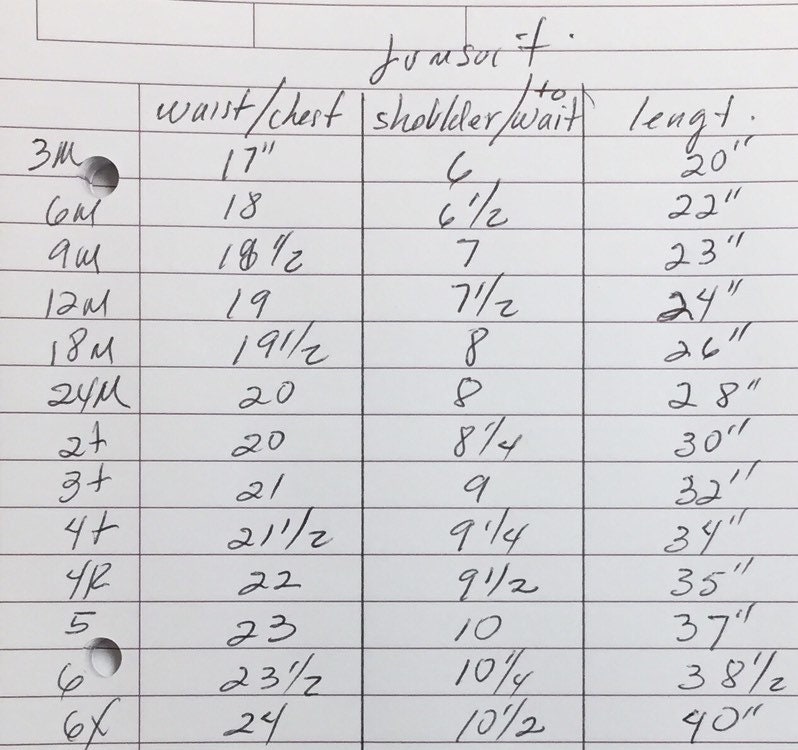 Jumsuit.
waist/chest shoulder/to wait lengt.
3M 17" 6 20"
6M 18 6 1/2 22"
9M 18 1/2 7 23"
12M 19 7 1/2 24"
18M 19 1/2 8 26"
24M 20 8 28"
2t 20 8 1/4 30"
3t 21 9 32"
4t 21 1/2 9 1/4 34"
4R 22 9 1/2 35"
5 23 10 37"
6 23 1/2 10 1/4 38 1/2
6X 24 10 1/2 40"